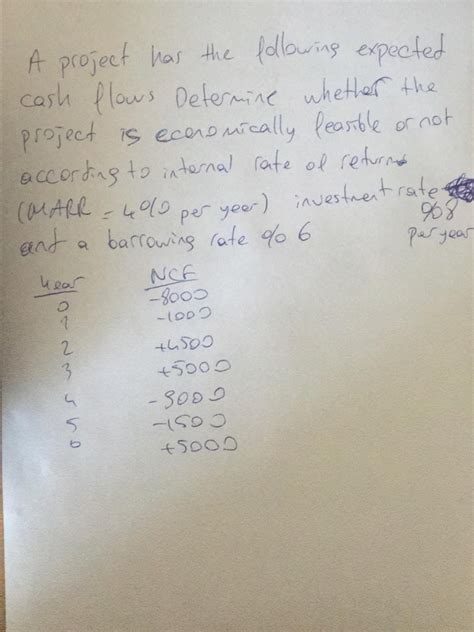 A project has the following expected
cash flows Determine whether the
project is economically feasible or not
according to internal rate of return
(MARR = 4% per year) investment rate %8
and a barrowing rate %6 per year
Year NCF
0 -8000
1 -1000
2 +4500
3 +5000
4 -3000
5 -1500
6 +5000